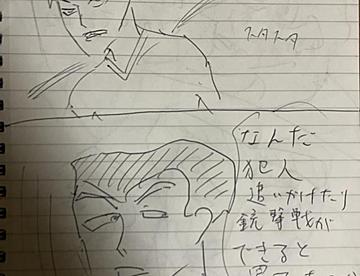 スタスタ
なんだ
犯人
追いかけたり
銃撃戦が
できると